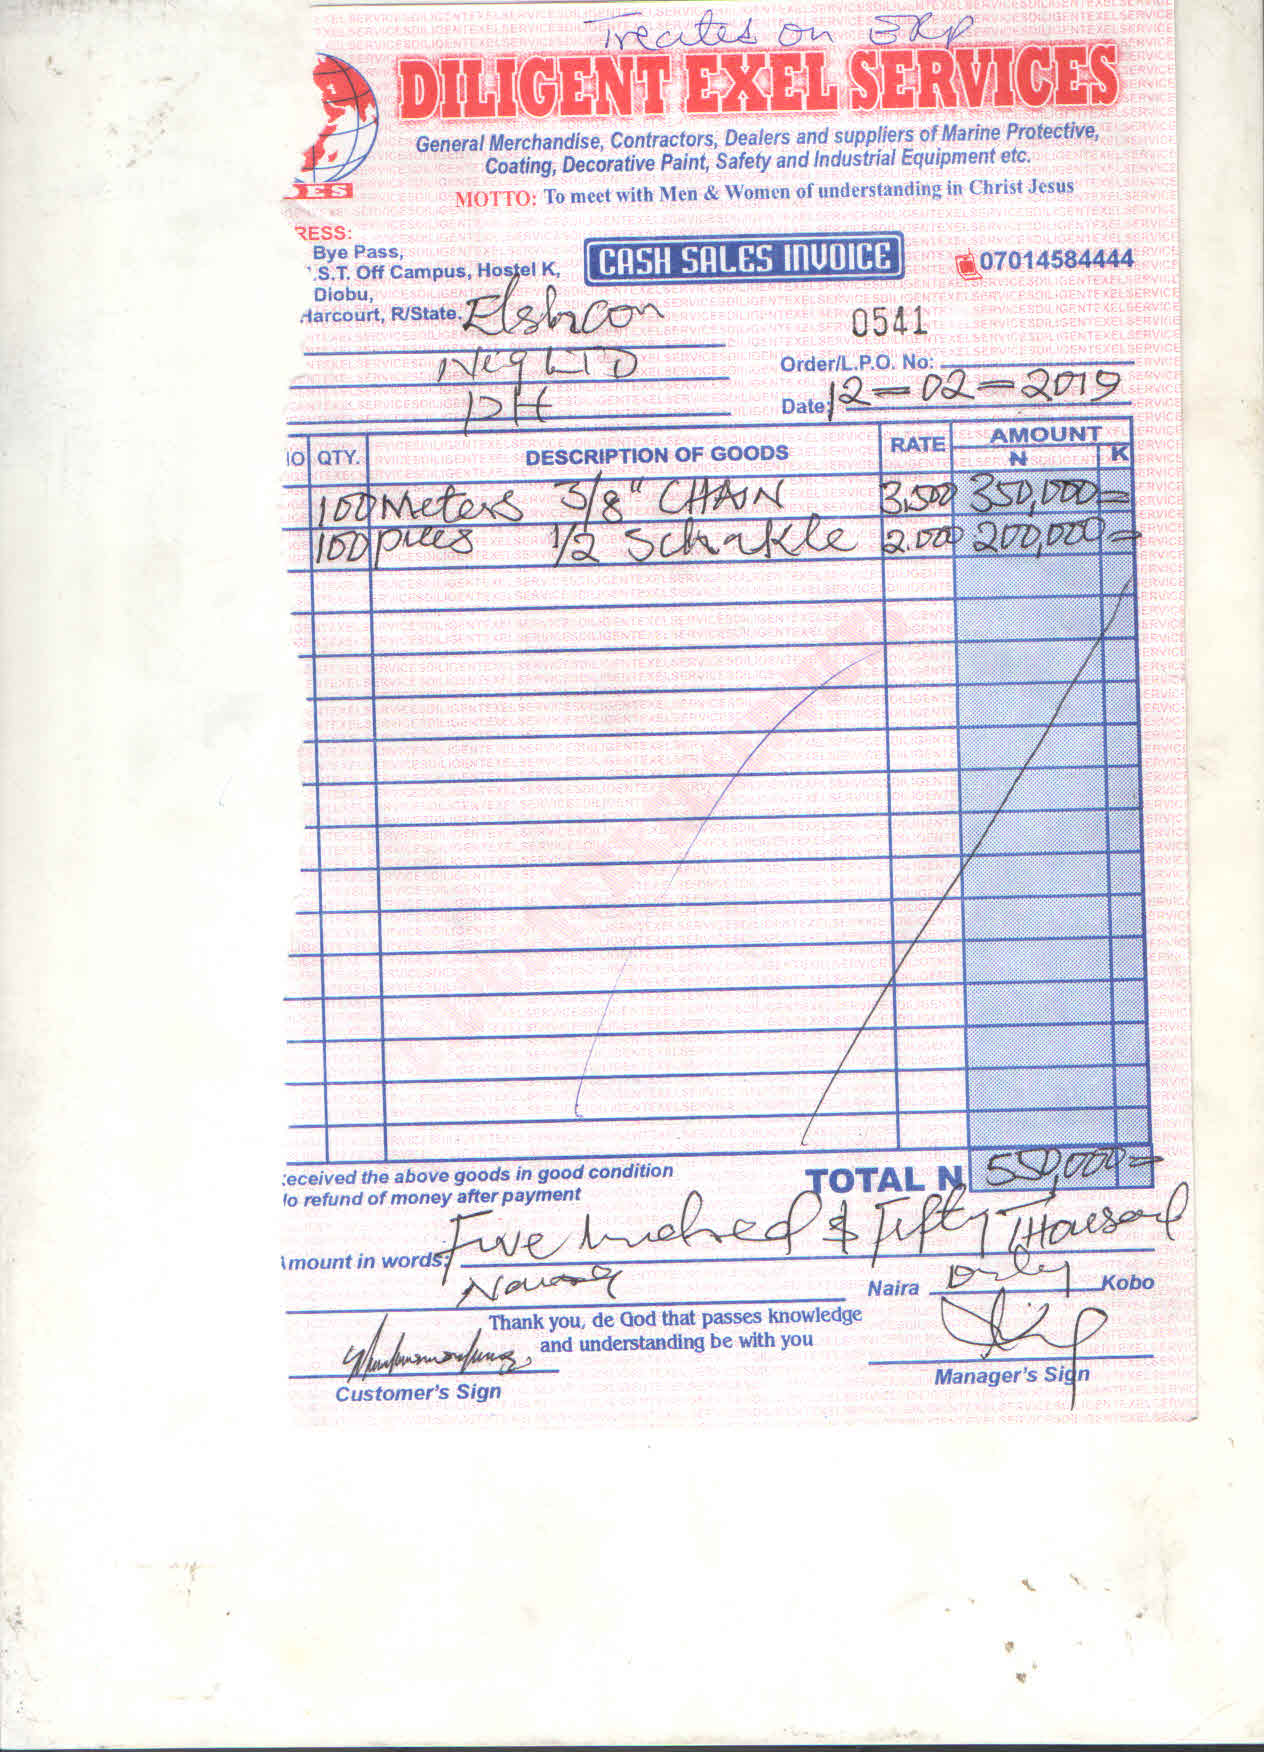 Treates on ERP
DILIGENT EXEL SERVICES
General Merchandise, Contractors, Dealers and suppliers of Marine Protective,
Coating, Decorative Paint, Safety and Industrial Equipment etc.
MOTTO: To meet with Men & Women of understanding in Christ Jesus
DES
RESS:
Bye Pass,
.S.T. Off Campus, Hostel K,
Diobu,
Harcourt, R/State.
CASH SALES INVOICE
07014584444
Elshcon
Nig LTD
PH
0541
Order/L.P.O. No:
Date: 12-02-2019
IO QTY. DESCRIPTION OF GOODS RATE AMOUNT
N K
100 Meters 3/8" CHAIN 3,500 350,000=
100 pices 1/2 Schakle 2.000 200,000=
TOTAL N 550,000=
eceived the above goods in good condition
lo refund of money after payment
Amount in words: Five hundred & Fifty Thousand
Naira Only Kobo
Thank you, de God that passes knowledge
and understanding be with you
Customer's Sign
Manager's Sign